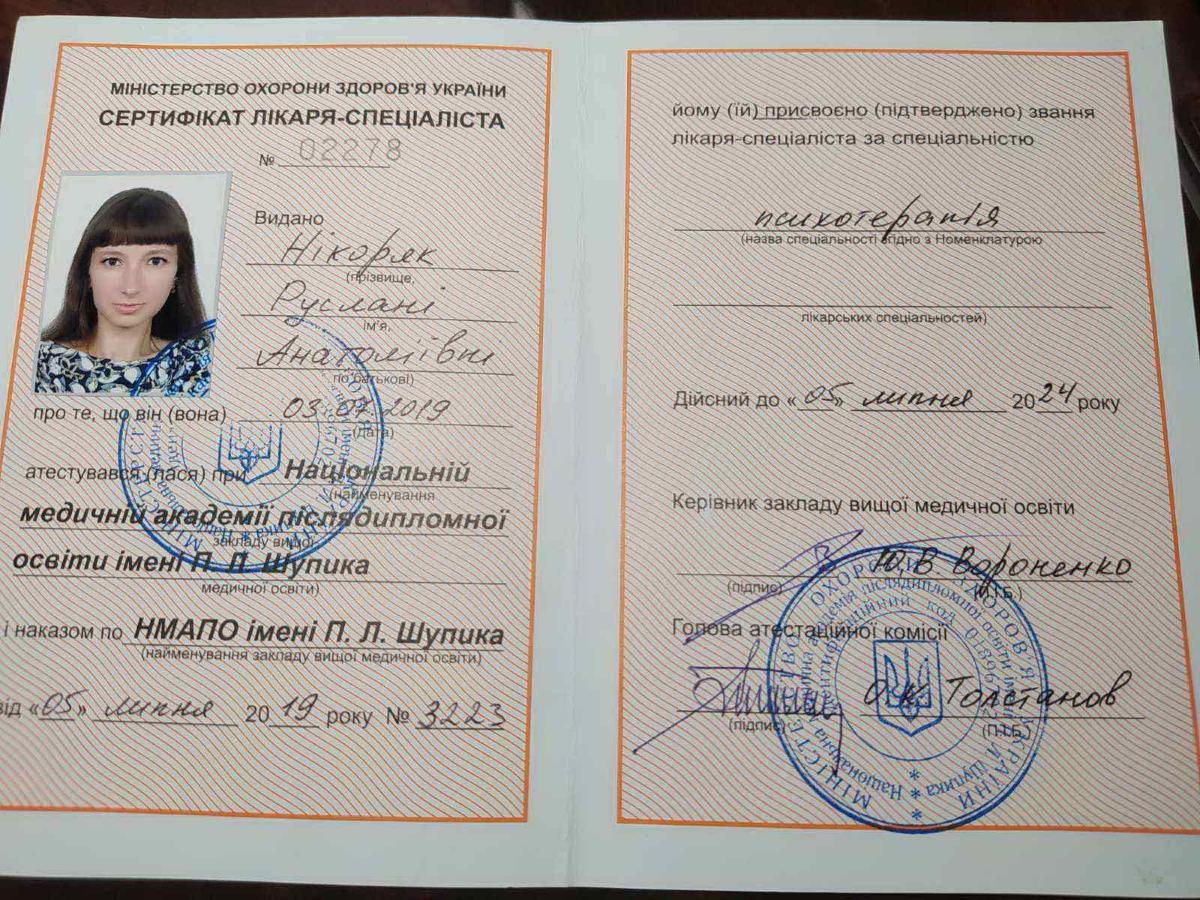 МІНІСТЕРСТВО ОХОРОНИ ЗДОРОВ'Я УКРАЇНИ
СЕРТИФІКАТ ЛІКАРЯ-СПЕЦІАЛІСТА
№ 02278
Видано
Нікоряк
(прізвище,
Руслані
ім'я,
Анатоліївні
по батькові)
про те, що він (вона) 03.07.2019
(дата)
атестувався (лася) при Національній
(найменування
медичній академії післядипломної
закладу вищої
освіти імені П. Л. Шупика
медичної освіти)
і наказом по НМАПО імені П. Л. Шупика
(найменування закладу вищої медичної освіти)
від «05» липня 2019 року № 3223
йому (їй) присвоєно (підтверджено) звання
лікаря-спеціаліста за спеціальністю
психотерапія
(назва спеціальності згідно з Номенклатурою
лікарських спеціальностей)
Дійсний до «05» липня 2024 року
Керівник закладу вищої медичної освіти
Ю.В Вороненко
(підпис) (П.І.Б.)
Голова атестаційної комісії
О.К. Толстанов
(підпис) (П.І.Б.)
МІНІСТЕРСТВО ОХОРОНИ ЗДОРОВ'Я УКРАЇНИ